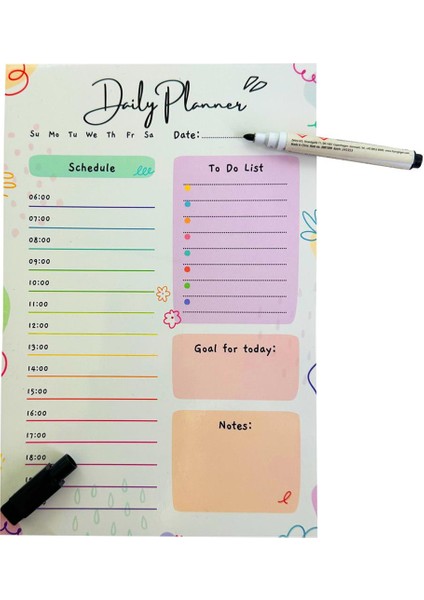 Daily Planner
Su Mo Tu We Th Fr Sa Date:
Schedule
To Do List
06:00
07:00
08:00
09:00
10:00
11:00
12:00
13:00
14:00
15:00
16:00
17:00
18:00
Goal for today:
Notes: